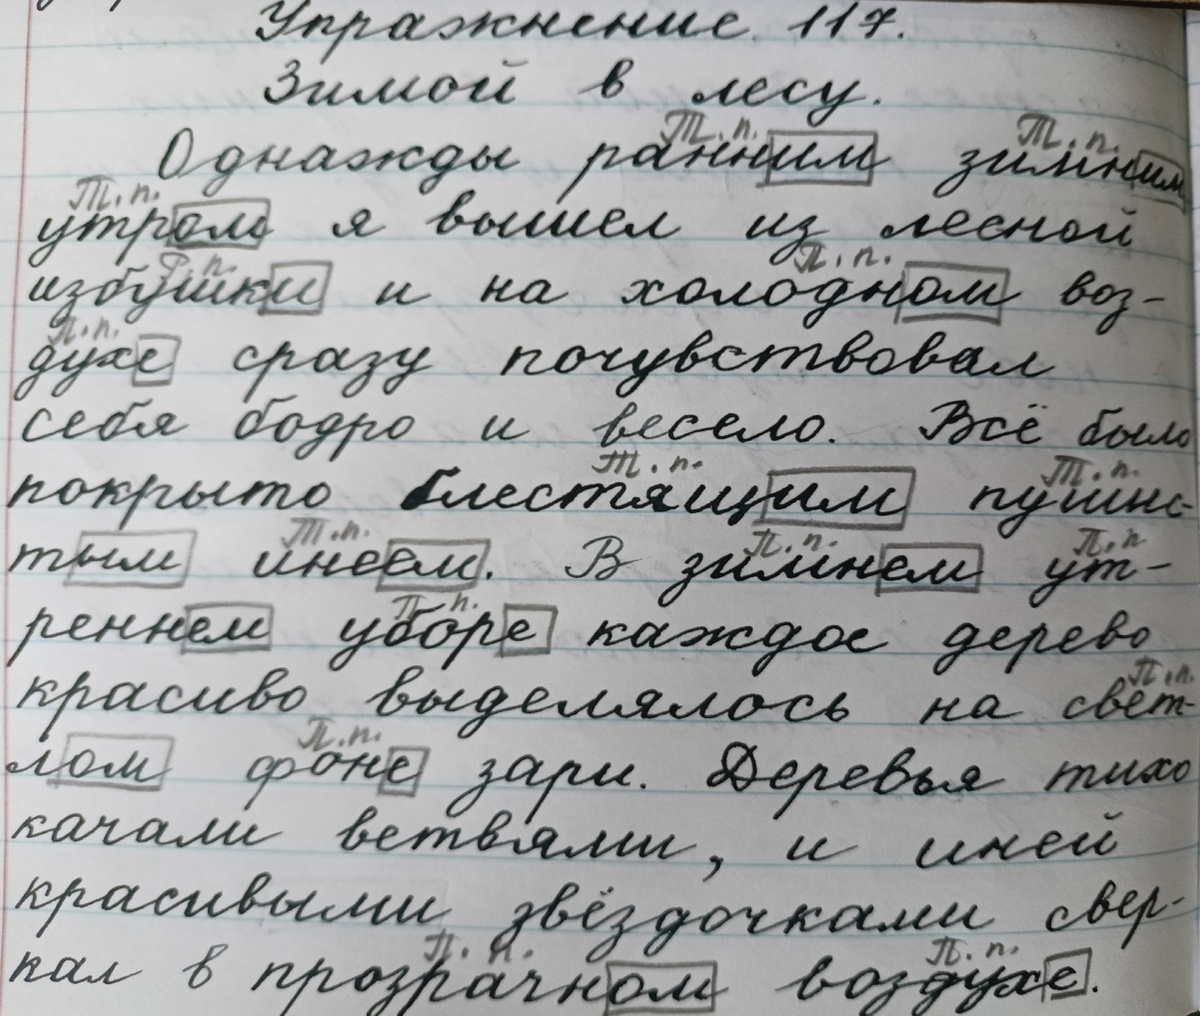 Упражнение. 117.
Зимой в лесу.
Т.п. Т.п.
Однажды ранним зимним
Т.п.
утром я вышел из лесной
Р.п. П.п.
избушки и на холодном воз-
П.п.
духе сразу почувствовал
себя бодро и весело. Всё было
Т.п. Т.п.
покрыто блестящим пушис-
Т.п. П.п. П.п
тым инеем. В зимнем ут-
П.п.
реннем уборе каждое дерево
П.п.
красиво выделялось на свет-
П.п.
лом фоне зари. Деревья тихо
качали ветвями, и иней
красивыми звёздочками свер-
П.п. П.п.
кал в прозрачном воздухе.